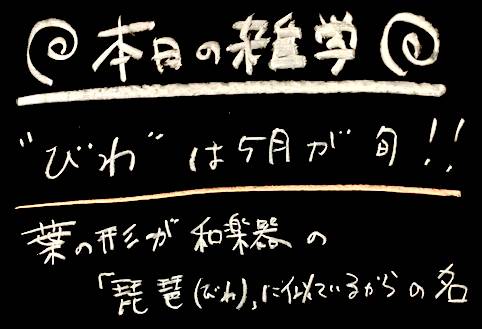 本日の雑学
"びわ"は5月が旬!!
葉の形が和楽器の
「琵琶(びわ)」に似ているからの名